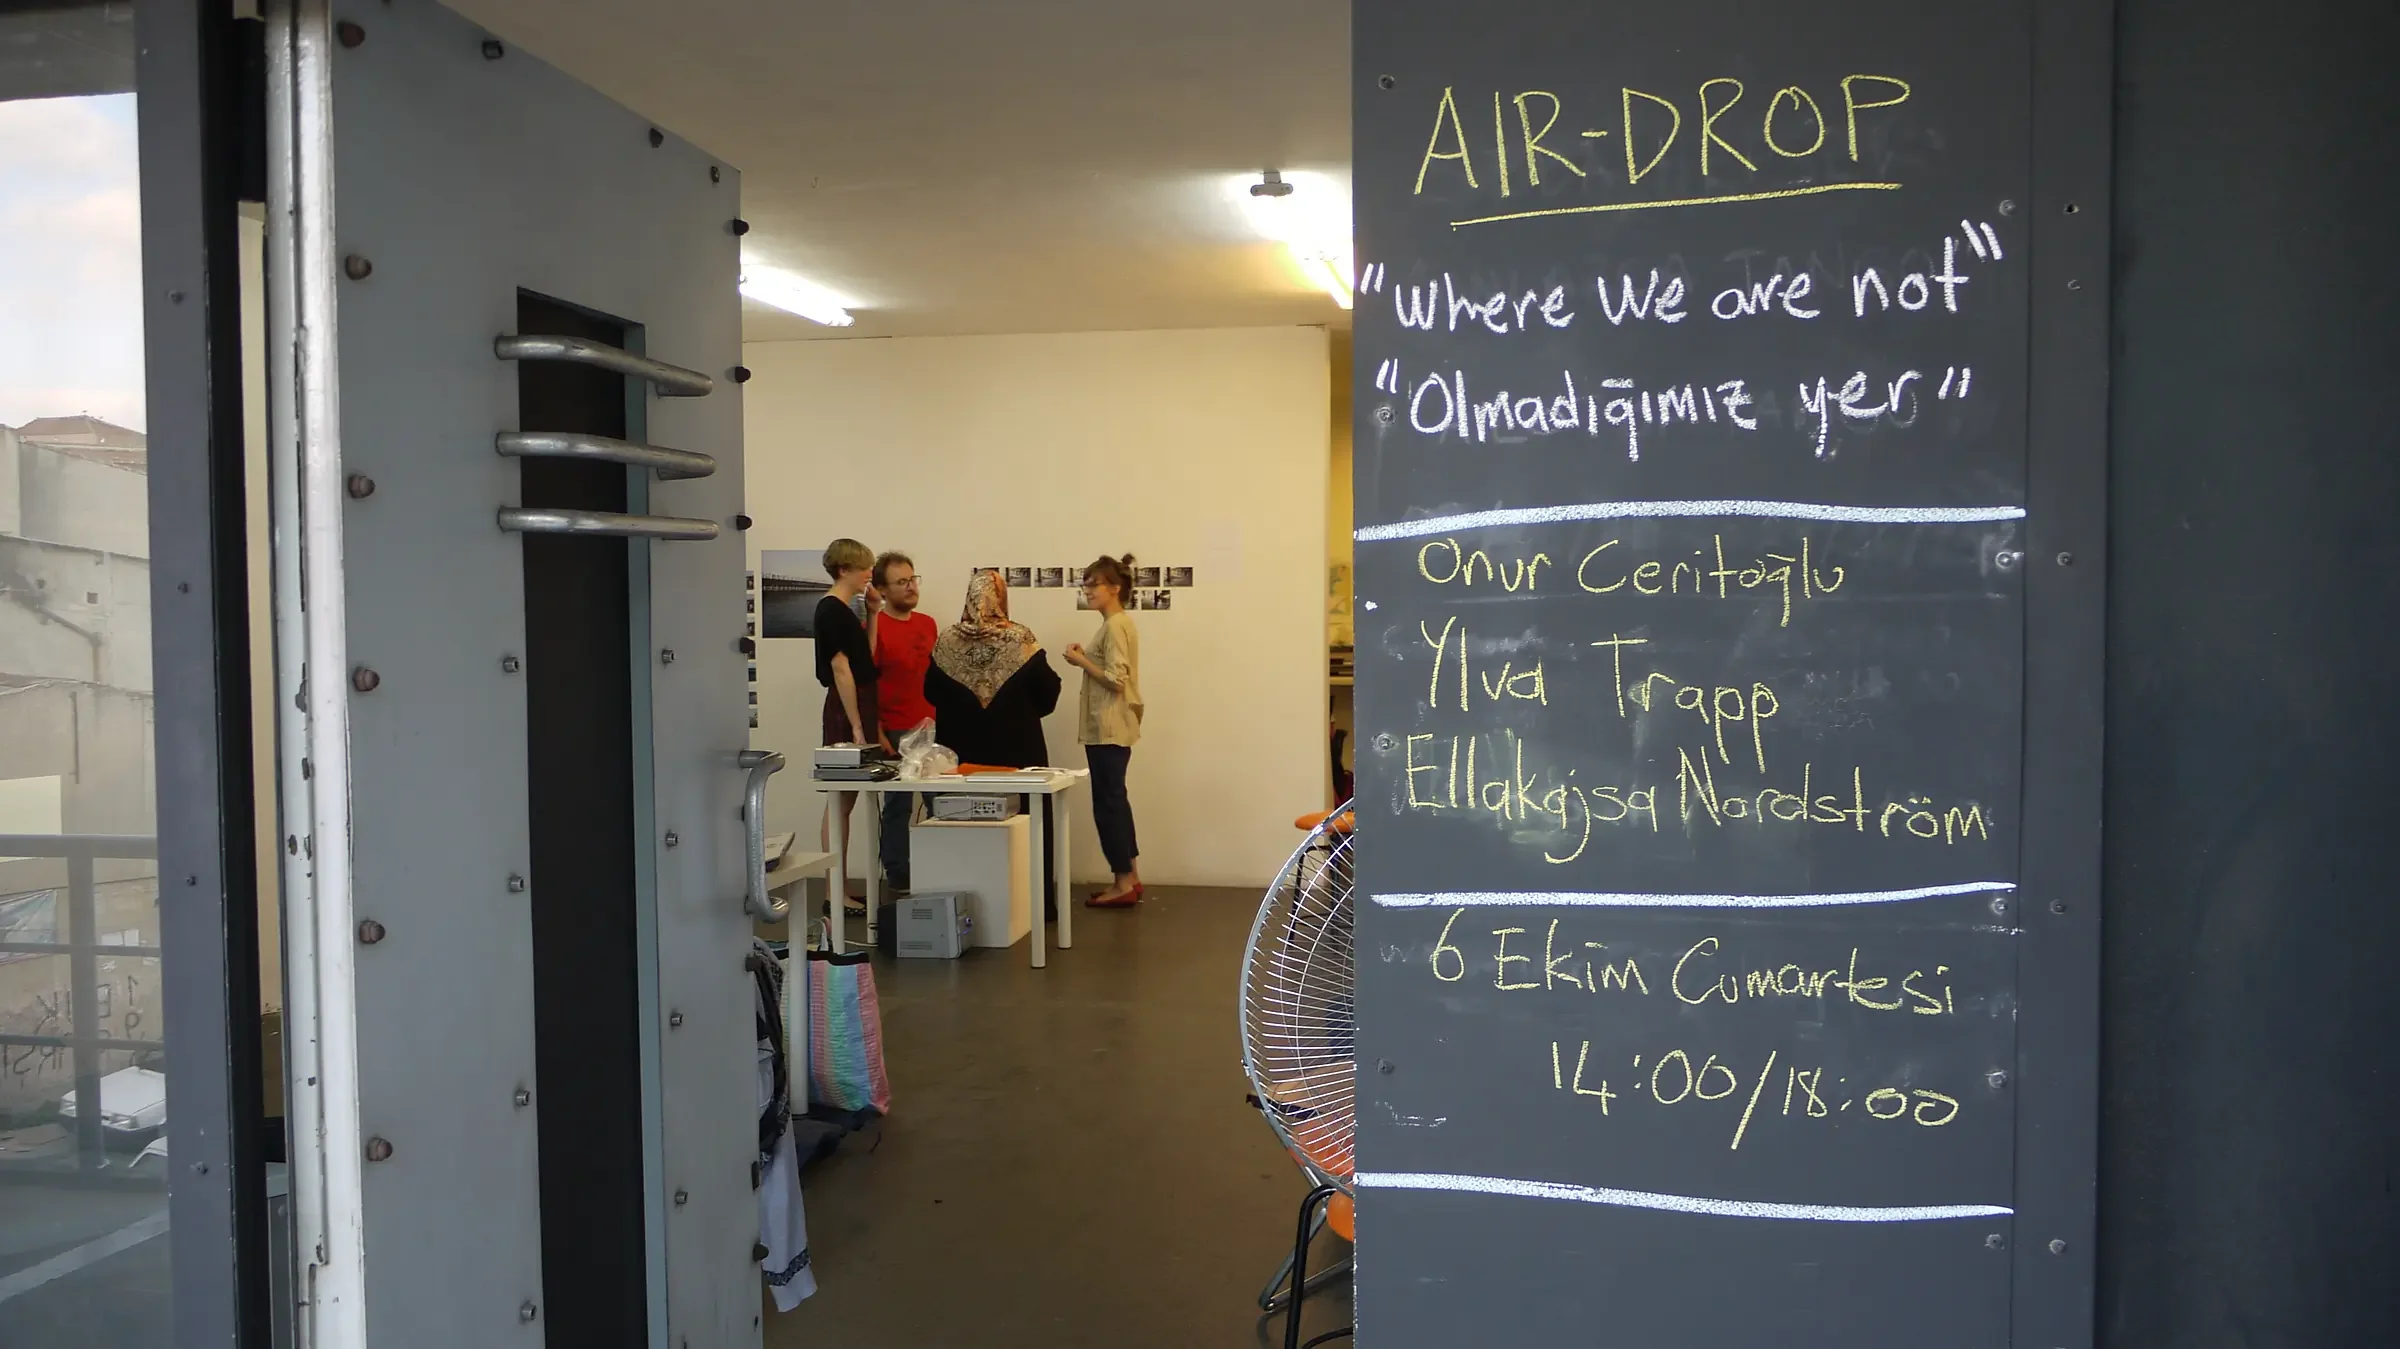 AIR-DROP
"Where We are not"
"Olmadığımız yer"
Onur Ceritoğlu
Ylva Trapp
Ellakajsa Nordström
6 Ekim Cumartesi
14:00/18:00